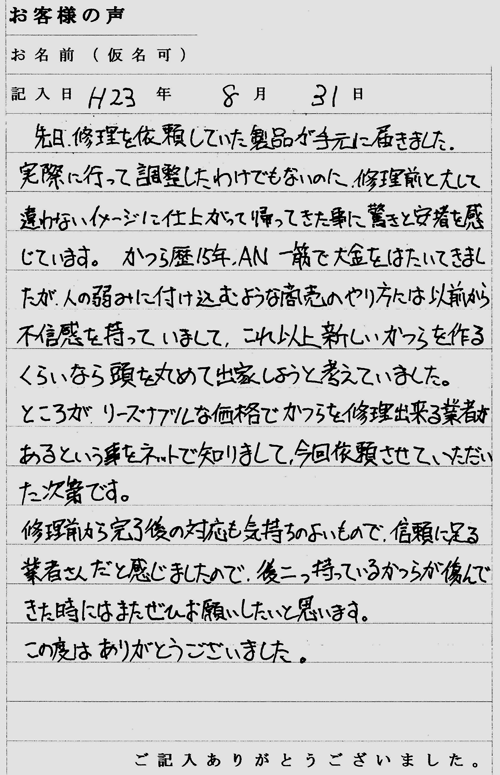 お客様の声
お名前（仮名可）
記入日 H23 年 8 月 31 日
先日、修理を依頼していた製品が手元に届きました。
実際に行って調整したわけでもないのに、修理前と大して
違わないイメージに仕上がって帰ってきた事に驚きと安者を感
じています。 かつら歴15年、AN 一筋で大金をはたいてきまし
たが、人の弱みに付け込むような商売のやり方には以前から
不信感を持っていまして、これ以上新しいかつらを作る
くらいなら頭を丸めて出家しようと考えていました。
ところが、リーズナブルな価格でかつらを修理出来る業者が
あるという事をネットで知りまして、今回依頼させていただい
た次第です。
修理前から完了後の対応も気持ちのよいもので、信頼に足る
業者さんだと感じましたので、後二つ持っているかつらが傷んで
きた時にはまたぜひお願いしたいと思います。
この度はありがとうございました。
ご記入ありがとうございました。